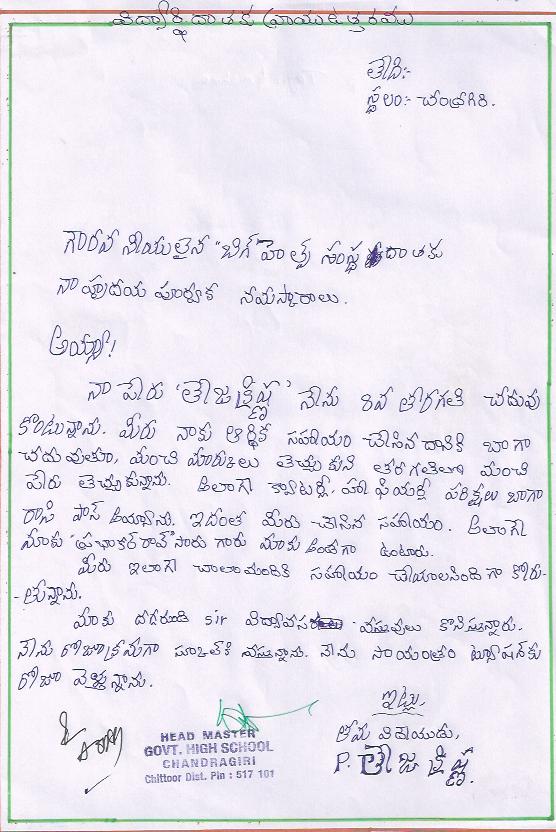 విద్యార్థి దాతకు వ్రాయు ఉత్తరము
తేది:-
స్థలం:- చంద్రగిరి.
గౌరవనీయులైన "బిగ్ హెల్ప్ సంస్థ దాతకు
నా హృదయ పూర్వక నమస్కారాలు.
అయ్యా!
నా పేరు 'తేజక్రిష్ణ' నేను 8వ తరగతి చదువు
కొంటున్నాను. మీరు నాకు ఆర్థిక సహాయం చేసిన దానికి బాగా
చదువుతూ, మంచి మార్కులు తెచ్చుకుని తరగతిలో మంచి
పేరు తెచ్చుకున్నాను. అలాగే క్వాటర్లీ, హాఫియర్లీ పరిక్షలు బాగా
రాసి పాస్ అయ్యాను. ఇదంత మీరు చేసిన సహాయం. అలాగే
మాకు 'ప్రభాకర్ రావ్' సారు గారు మాకు అండగా ఉంటారు.
మీరు ఇలాగే చాలామందికి సహాయం చేయాలసిందిగా కోరు-
-తున్నాను.
మాకు sir వస్తువులు కొనిస్తున్నారు.
నేను రోజూక్రమంగా స్కూల్‌కి వస్తున్నాను. నేను సాయంత్రం ట్యూషన్‌కు
రోజూ వెళ్తున్నాను.
ఇట్లు,
తమ విదేయుడు,
P. తేజ క్రిష్ణ.
HEAD MASTER
GOVT. HIGH SCHOOL
CHANDRAGIRI
Chittoor Dist. Pin : 517 101